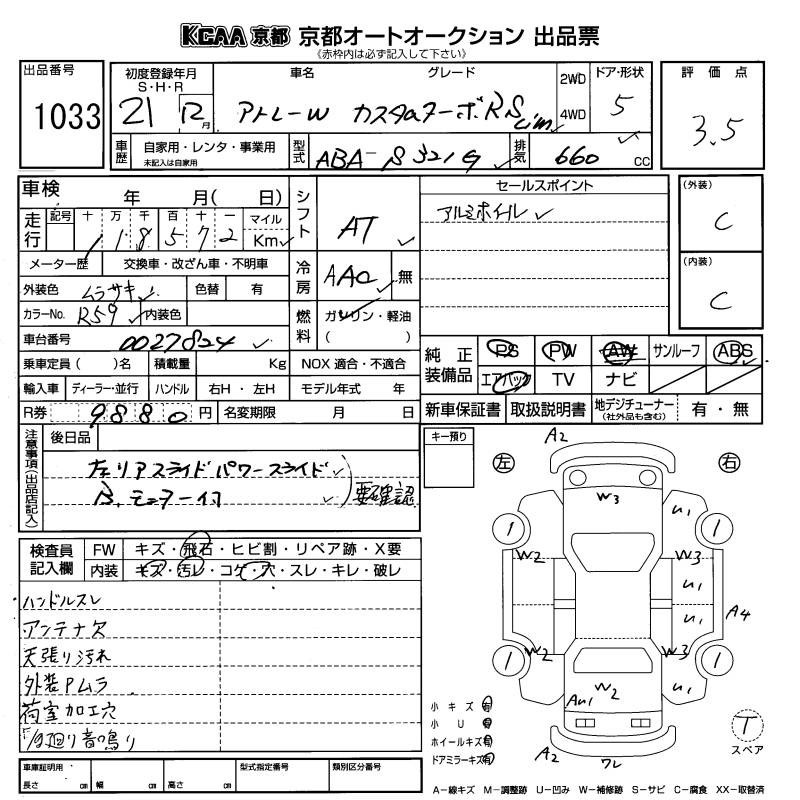 KCAA 京都 京都オートオークション 出品票
《赤枠内は必ず記入して下さい》
出品番号
1033
初度登録年月
S・H・R
21 12 月
車名 グレード
アトレーW カスタムターボRS
2WD
4WD
ドア・形状
5
評価点
3.5
車歴
自家用・レンタ・事業用
未記入は自家用
型式
ABA-S321G
排気
660 CC
車検 年 月( 日)
走行
記号 十 万 千 百 十 一 マイル
1 1 8 5 7 2 Km
メーター歴 交換車・改ざん車・不明車
外装色 ムラサキ 色替 有
カラーNo. R59 内装色
車台番号 0027824
乗車定員( )名 積載量 Kg
輸入車 ディーラー・並行 ハンドル 右H・左H
R券 9880 円 名変期限 月 日
シフト
AT
冷房
AAC 無
燃料
ガソリン・軽油
( )
NOX 適合・不適合
モデル年式 年
セールスポイント
アルミホイル
(外装)
C
(内装)
C
純正装備品
PS PW AW サンルーフ ABS
エアバック TV ナビ
新車保証書 取扱説明書 地デジチューナー (社外品も含む) 有・無
注意事項(出品店記入)
後日品
左リアスライドパワースライド
B.モニター イワ
要確認
キー預り
検査員記入欄
FW キズ・飛石・ヒビ割・リペア跡・X要
内装 キズ・汚レ・コゲ・穴・スレ・キレ・破レ
ハンドルスレ
アンテナ欠
天張り汚れ
外装Pムラ
荷室加工穴
廻り音鳴り
左 右
A2
W3
U1
1 1
W2 W3
U1
U1
A4
W2 W3
1 1
W2
AU1
U1
A2
ワレ
小キズ 有
小U 有
ホイールキズ 有
ドアミラーキズ 有
T
スペア
車庫証明用
長さ cm 幅 cm 高さ cm
型式指定番号
類別区分番号
A−線キズ M−調整跡 U−凹み W−補修跡 S−サビ C−腐食 XX−取替済